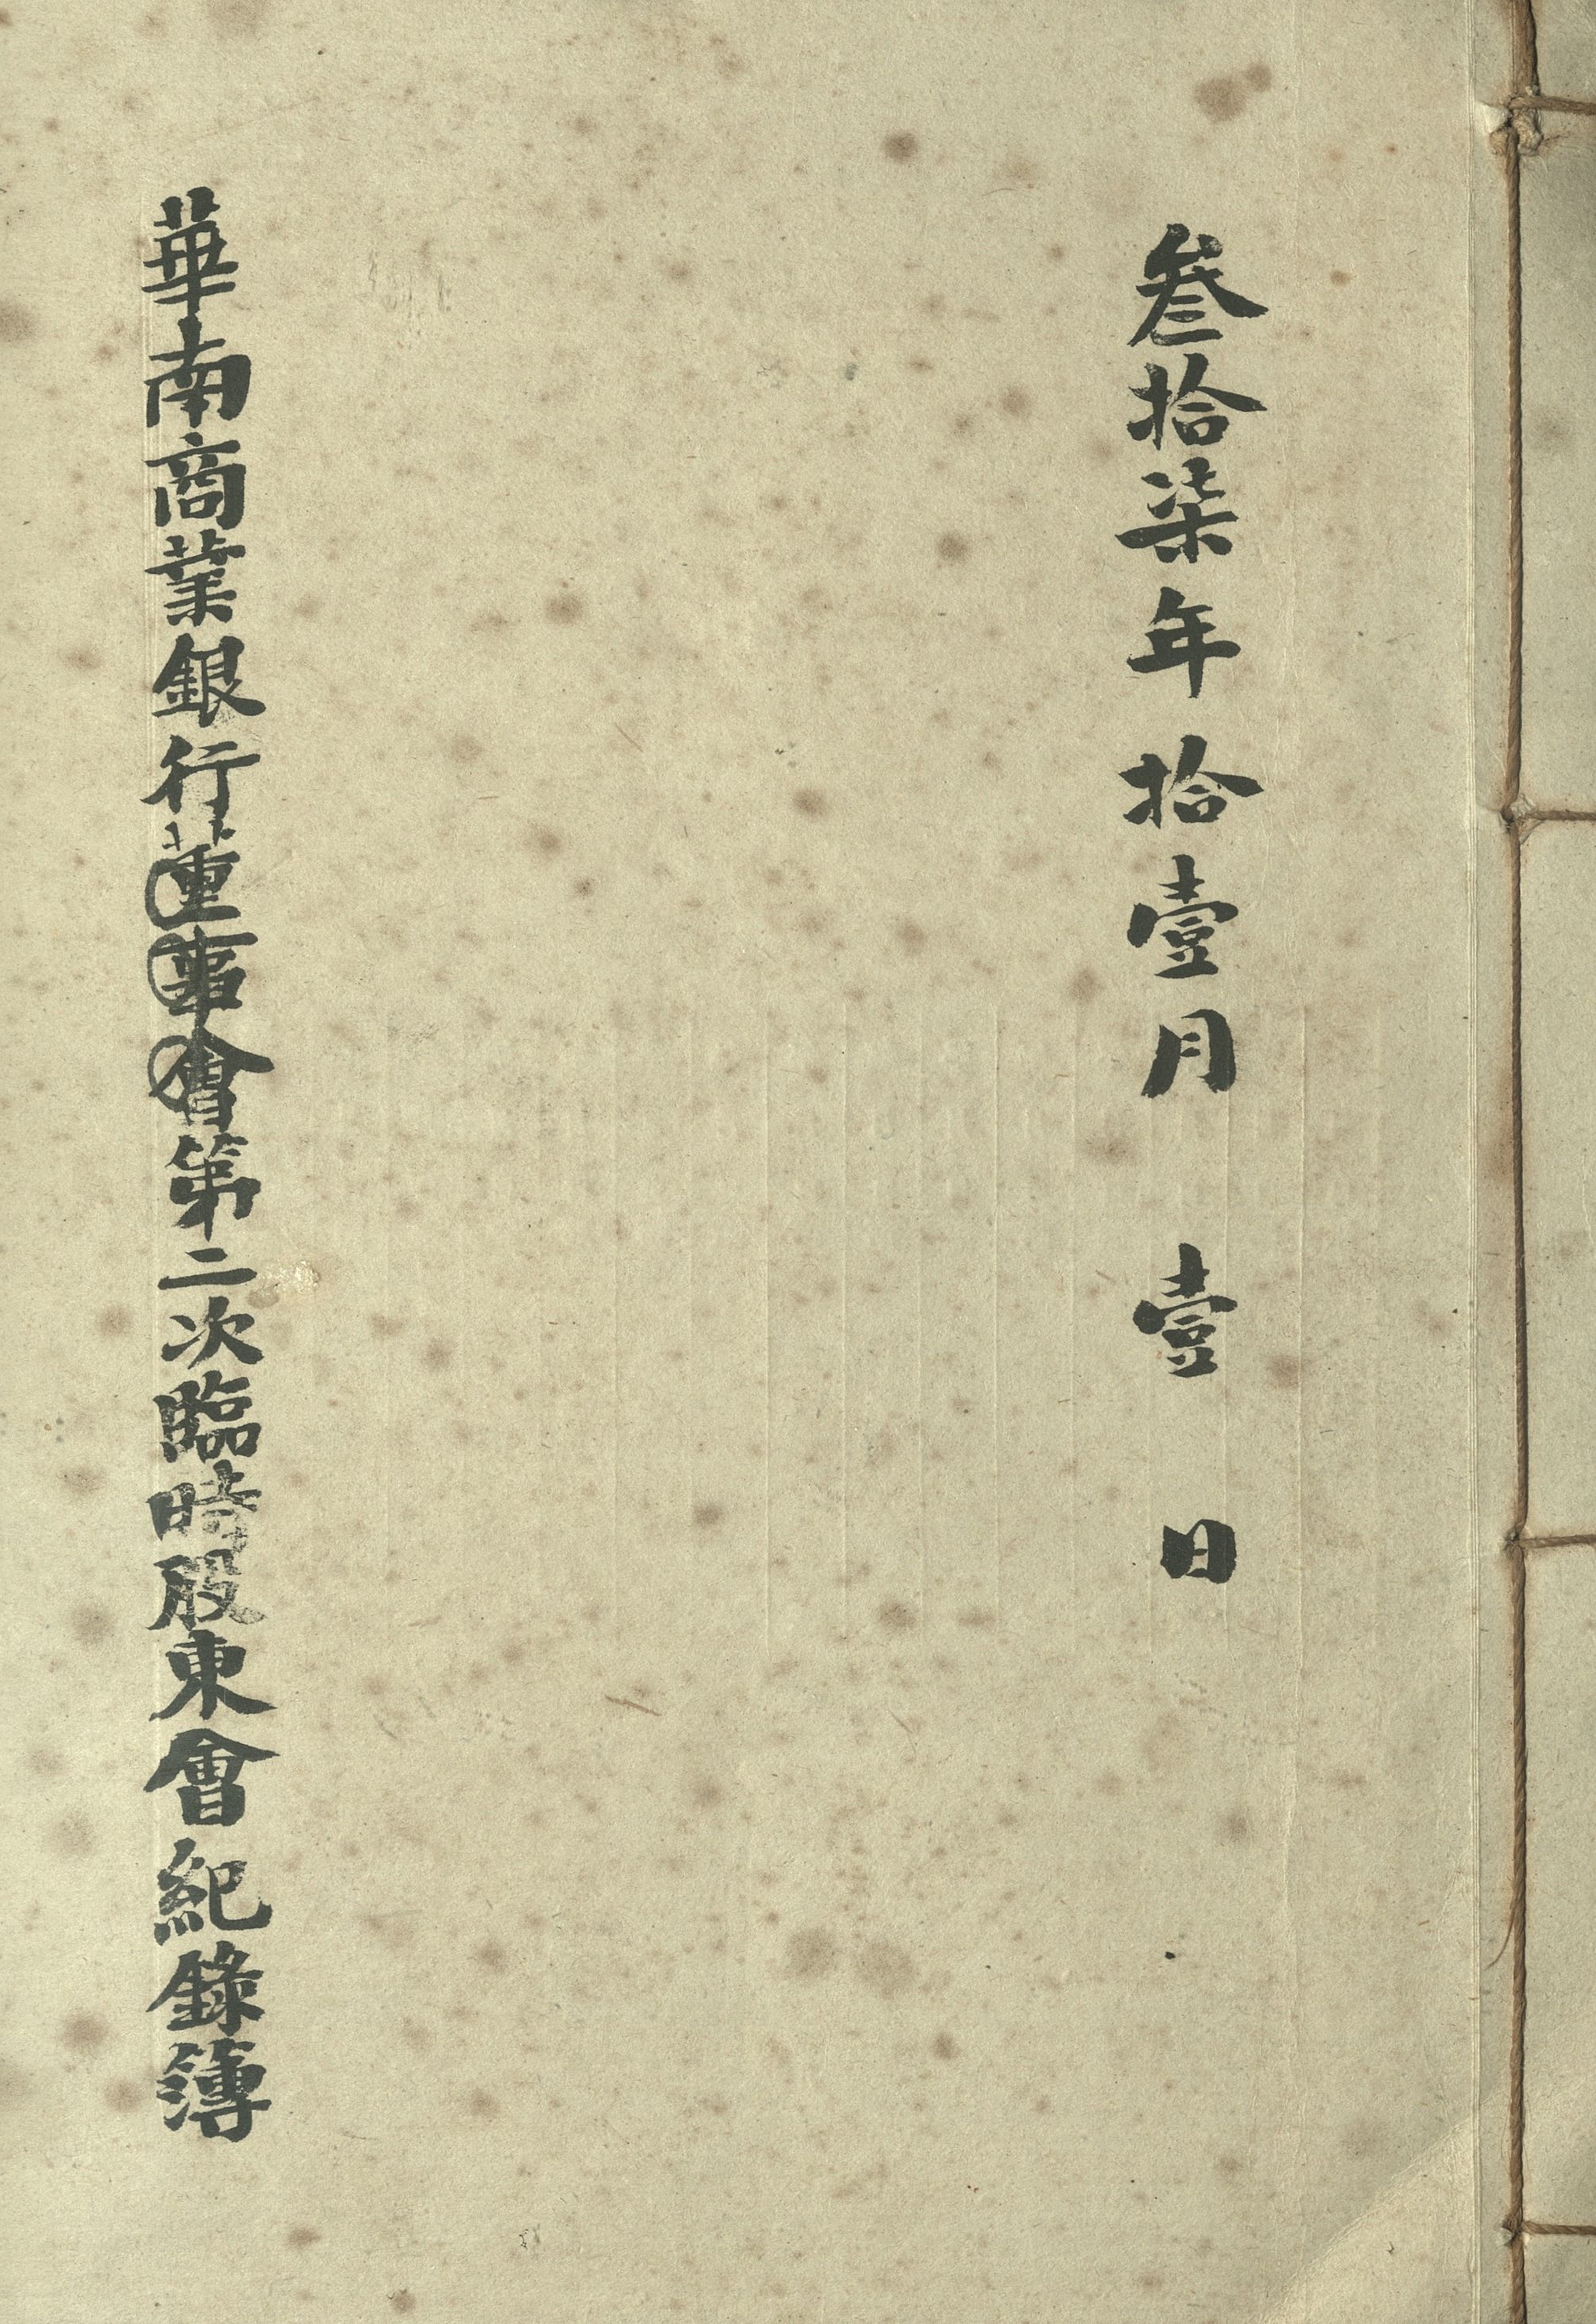 叁拾柒年拾壹月壹日
華南商業銀行董事會第二次臨時股東會紀錄簿